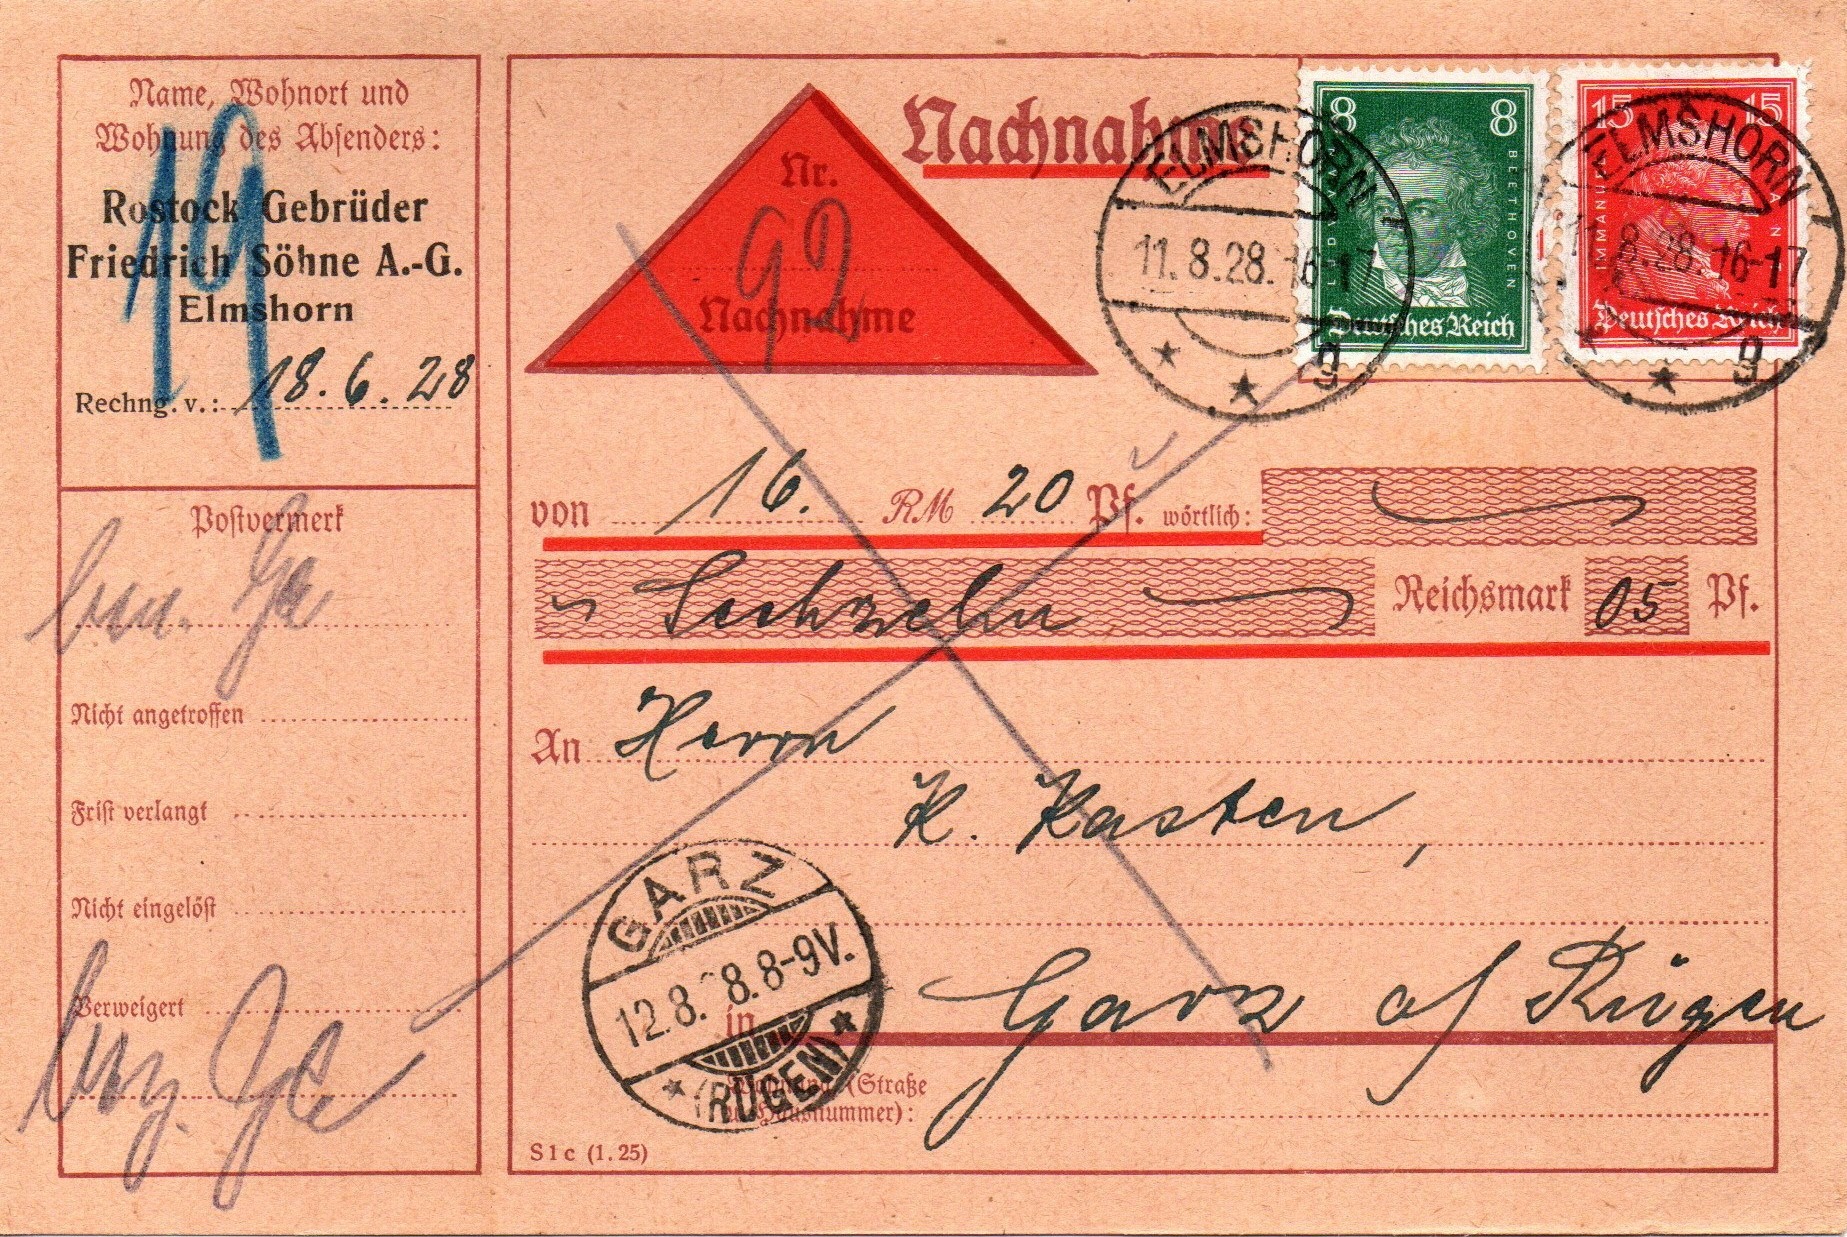 Name, Wohnort und
Wohnung des Absenders:
Rostock Gebrüder
Friedrich Söhne A.-G.
Elmshorn
19
Rechng. v.: 18.6.28
Postvermerk
Nicht angetroffen
Frist verlangt
Nicht eingelöst
Verweigert
Nachnahme
Nr.
92
Nachnahme
8 8
LUDWIG V. BEETHOVEN
Deutsches Reich
15 15
IMMANUEL KANT
Deutsches Reich
ELMSHORN
11.8.28.16-17
g
ELMSHORN
11.8.28.16-17
g
von 16. RM 20 Pf. wörtlich:
Sechzehn Reichsmark 05 Pf.
An Herrn
K. Kasten,
GARZ
12.8.28.8-9V.
(RÜGEN)
in Garz a/ Rügen
Wohnung (Straße
u. Hausnummer):
S1c (1.25)